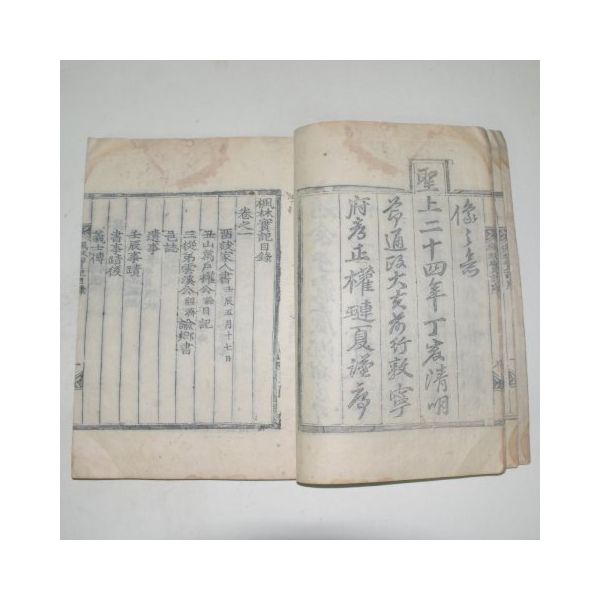 像之無
聖
上二十四年丁亥清明
前通政大夫前行敦寧
府都正權璉夏謹序
楓林實記目錄
卷之一
西說家人書 壬辰五月十七日
丑山萬戶權公詮日記
三從弟雲溪公 諭鄉書
邑誌
遺事
壬辰事蹟
書事蹟後
義士傳